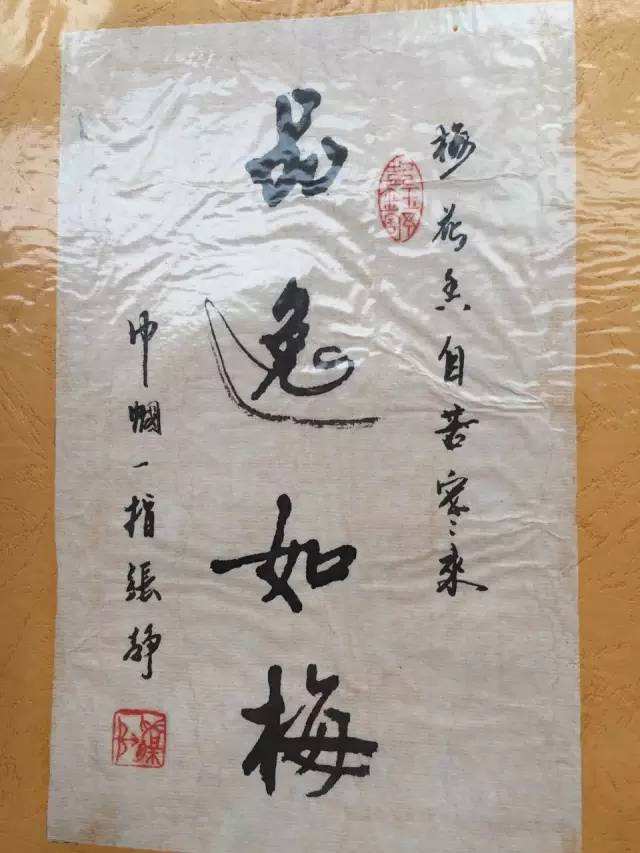 梅花香自苦寒来
品逸如梅
巾帼一指張静